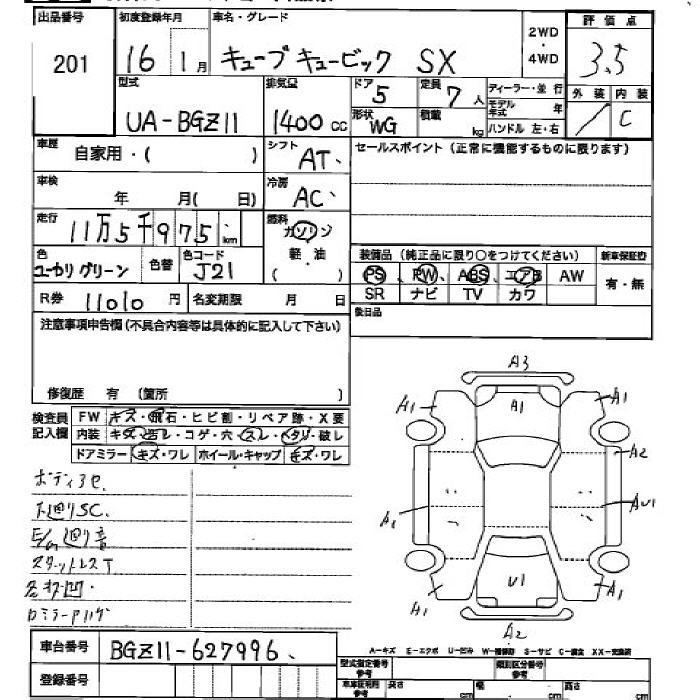 出品番号 初度登録年月 車名・グレード 2WD・4WD 評価点
201 16 1月 キューブキュービック SX 3.5
型式 排気量 ドア 5 定員 7人 ディーラー・並行 外装 内装
UA-BGZ11 1400cc 形状 WG 積載 kg モデル年式 年 C
ハンドル 左・右
車歴 自家用・( ) シフト AT セールスポイント (正常に機能するものに限ります)
車検 年 月( 日) 冷房 AC
走行 11万5千975km 燃料 ガソリン
色 色替 色コード 軽・油 装備品 (純正品に限り○をつけてください) 新車保証書
ユーカリグリーン J21 ( ) PS PW ABS エアB AW 有・無
R券 11010円 名変期限 月 日 SR ナビ TV カワ
注意事項申告欄 (不具合内容等は具体的に記入して下さい) 後日品
修復歴 有 (箇所 )
検査員 FW キズ・飛石・ヒビ割・リペア跡・X要
記入欄 内装 キズ・汚レ・コゲ・穴・スレ・ヘタリ・破レ
ドアミラー キズ・ワレ ホイール・キャップ キズ・ワレ
ボディアセ
下廻りSC.
E/G廻り音
スタットレスT
各部凹
A3
A1 A1 A1
A2
A1 AU1
U1
A1 A1
A2
車台番号 BGZ11-627996
登録番号
A-キズ E-エクボ U-凹み W-補修跡 S-サビ C-腐食 XX-交換済
型式指定番号 参考 類別区分番号 参考
車車証明用 参考 長さ cm 幅 cm 高さ cm